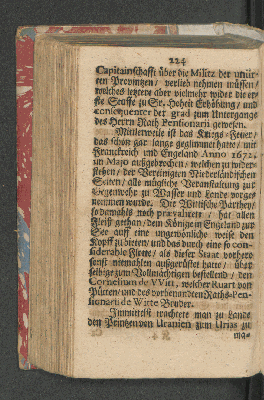 224
Capitainschafft über die Militz der unirr-
ten Provintzen / verlieh nehmen müssen /
welches letzere aber vielmehr wider die er-
ste Staffe zu Sr. Hoheit Erhöhung / und
consequenter der grad zum Untergange
des Herrn Rath Pensionarii gewesen.
Mittlerweile ist das Kriegs-Feuer /
das schon gar lange geglimmet hatte / mit
Franckreich und Engeland Anno 1672.
in Majo außgebrochen / welchen zu wider-
stehen / der Vereinigten Niederländischen
Seiten / alle mügliche Veranstaltung zur
Gegenwehr zu Wasser und Lande vorge-
nommen wurde. Die Wittische Parthey /
so damahls noch prævalirte / hat allen
Fleiß gethan / dem Könige in Engeland zur
See auff eine ungewönliche weise den
Kopff zu bieten / und das durch eine so con-
siderable Flotte / als dieser Staat vorhero
sonst niemahlen außgerüstet hatte / über
selbige zum Vollmächtigen bestellend / den
Cornelium de VVitt, welcher Ruart von
Pütten / und des vorbenandten Raths-Pen-
sionarii de Witte Bruder.
Immittelst machete man zu Lande
den Printzen von Uranien zum Urias zu
ma-